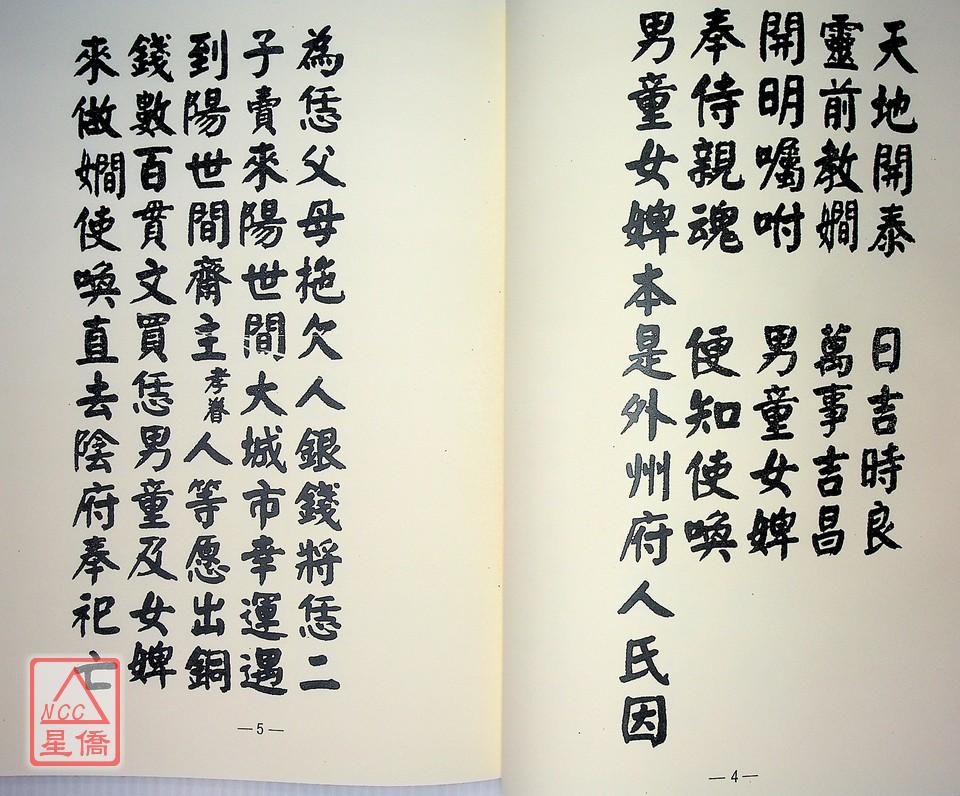 天地開泰 日吉時良
靈前教嫺 萬事吉昌
開明囑咐 男童女婢
奉侍親魂 便知使喚
男童女婢本是外州府人氏因
—4—
為恁父母拖欠人銀錢將恁二
子賣來陽世間大城市幸運遇
到陽世間齋主孝眷人等愿出銅
錢數百貫文買恁男童及女婢
來做嫺使喚直去陰府奉祀亡
—5—
NCC
星僑